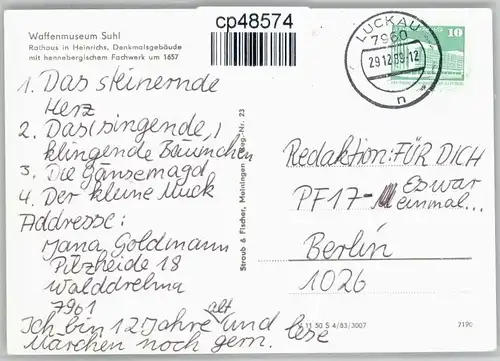 Waffenmuseum Suhl
Rathaus in Heinrichs, Denkmalsgebäude
mit hennebergischem Fachwerk um 1657
cp48574
LUCKAU
7960
29.12.89-12
n
10
1. Das steinernde
Herz
2. Das (singende,)
klingende Bäumchen
3. Die Gänsemagd
4. Der kleine Muck
Addresse:
Jana Goldmann
Pilzheide 18
Walddrehna
7961
Ich bin 12 Jahre alt und lese
Märchen noch gern.
Straub & Fischer, Meiningen Reg.-Nr. 23
Redaktion: FÜR DICH
PF 17 - Es war
einmal...
Berlin
1026
V 11 50 S 4/83/3007
7190